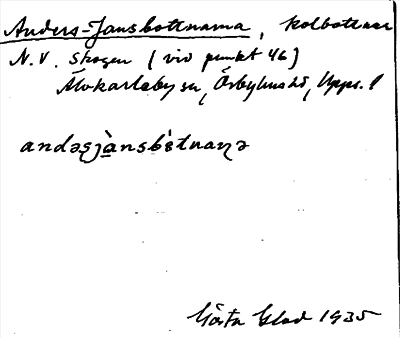 Anders-Jansbottnarna, kolbottnar
N.V. skogen (vid punkt 46)
Älvkarleby sn, Örbyhus hd, Upps. l
Gösta Blad 1935